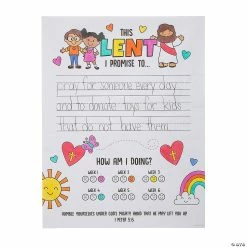 THIS
LENT
I PROMISE TO...
pray for someone every day
and to donate toys for kids
that do not have them.
HOW AM I DOING?
WEEK 1 WEEK 2 WEEK 3
WEEK 4 WEEK 5 WEEK 6
HUMBLE YOURSELVES UNDER GOD'S MIGHTY HAND THAT HE MAY LIFT YOU UP
1 PETER 5:6